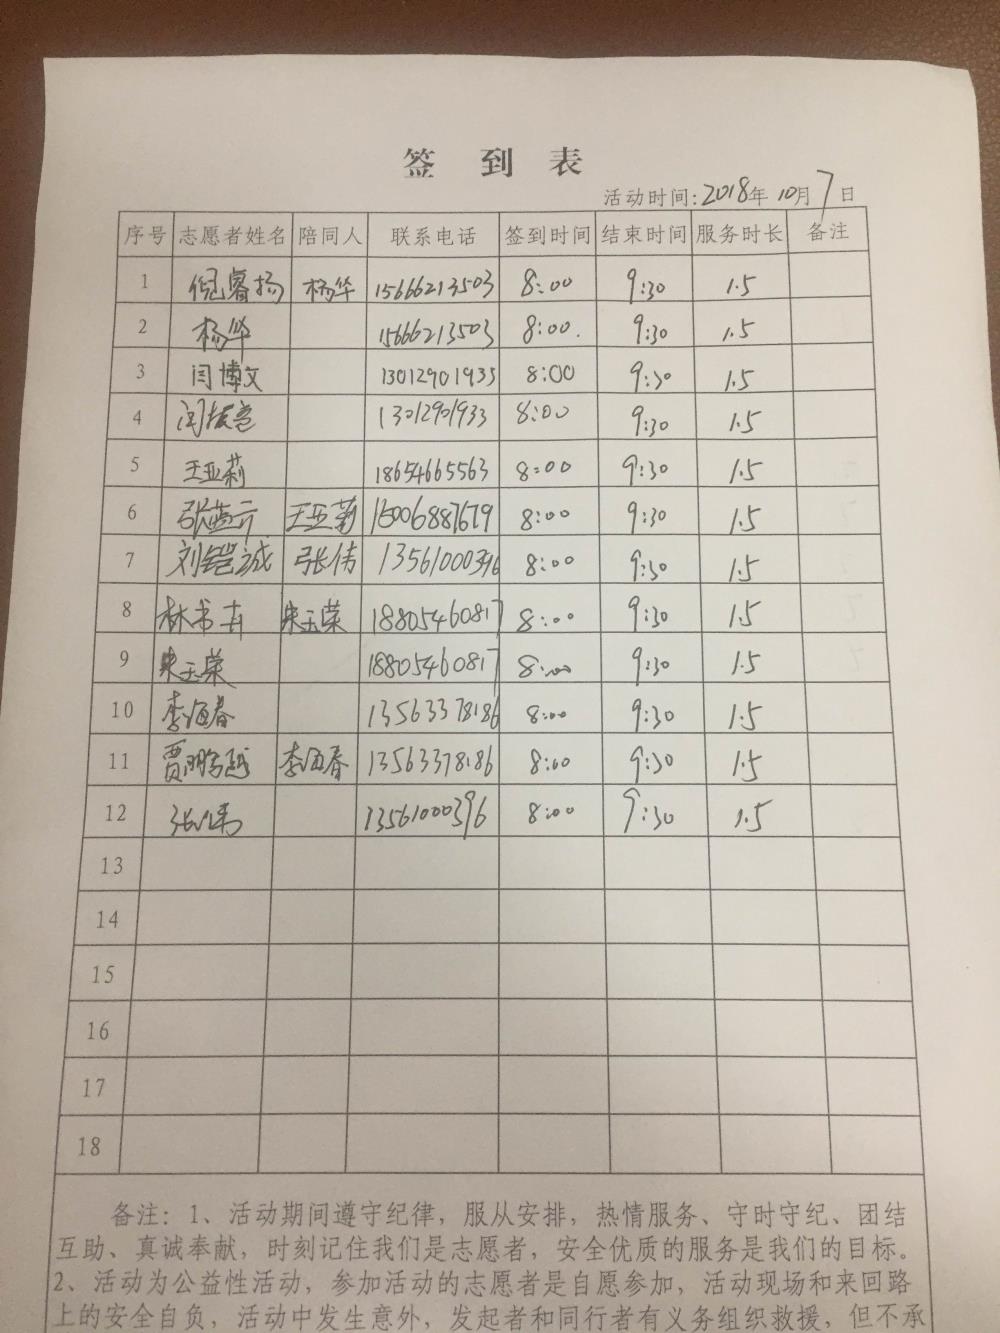 签 到 表
活动时间:2018年10月7日
序号 志愿者姓名 陪同人 联系电话 签到时间 结束时间 服务时长 备注
1 倪睿扬 杨华 15666213503 8:00 9:30 1.5
2 杨华 15666213503 8:00. 9:30 1.5
3 闫博文 13012901933 8:00 9:30 1.5
4 13012901933 8:00 9:30 1.5
5 王亚莉 18654665563 8:00 9:30 1.5
6 王亚莉 15006887679 8:00 9:30 1.5
7 刘铠诚 张伟 13561000396 8:00 9:30 1.5
8 林书卉 朱玉荣 18805460817 8:00 9:30 1.5
9 朱玉荣 18805460817 8:00 9:30 1.5
10 李海春 13563378186 8:00 9:30 1.5
11 贾鹏越 李海春 13563378186 8:00 9:30 1.5
12 张伟 13561000396 8:00 9:30 1.5
13
14
15
16
17
18
备注：1、活动期间遵守纪律，服从安排，热情服务、守时守纪、团结
互助、真诚奉献，时刻记住我们是志愿者，安全优质的服务是我们的目标。
2、活动为公益性活动，参加活动的志愿者是自愿参加，活动现场和来回路
上的安全自负，活动中发生意外，发起者和同行者有义务组织救援，但不承